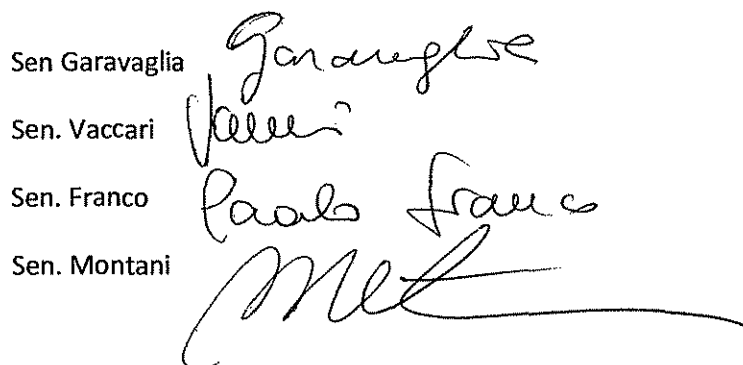 Sen Garavaglia Garavaglia
Sen. Vaccari Vaccari
Sen. Franco Paolo Franco
Sen. Montani